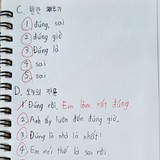 C.
① đúng, sai
② đúng giờ
③ Đúng là
④ đúng
⑤ sai
D. 오늘의 표현
1. Đúng rồi. Em làm rất đúng.
2. Anh ấy luôn đến đúng giờ.
3. Đúng là nhà là nhất!
4. Em nói thế là sai rồi.